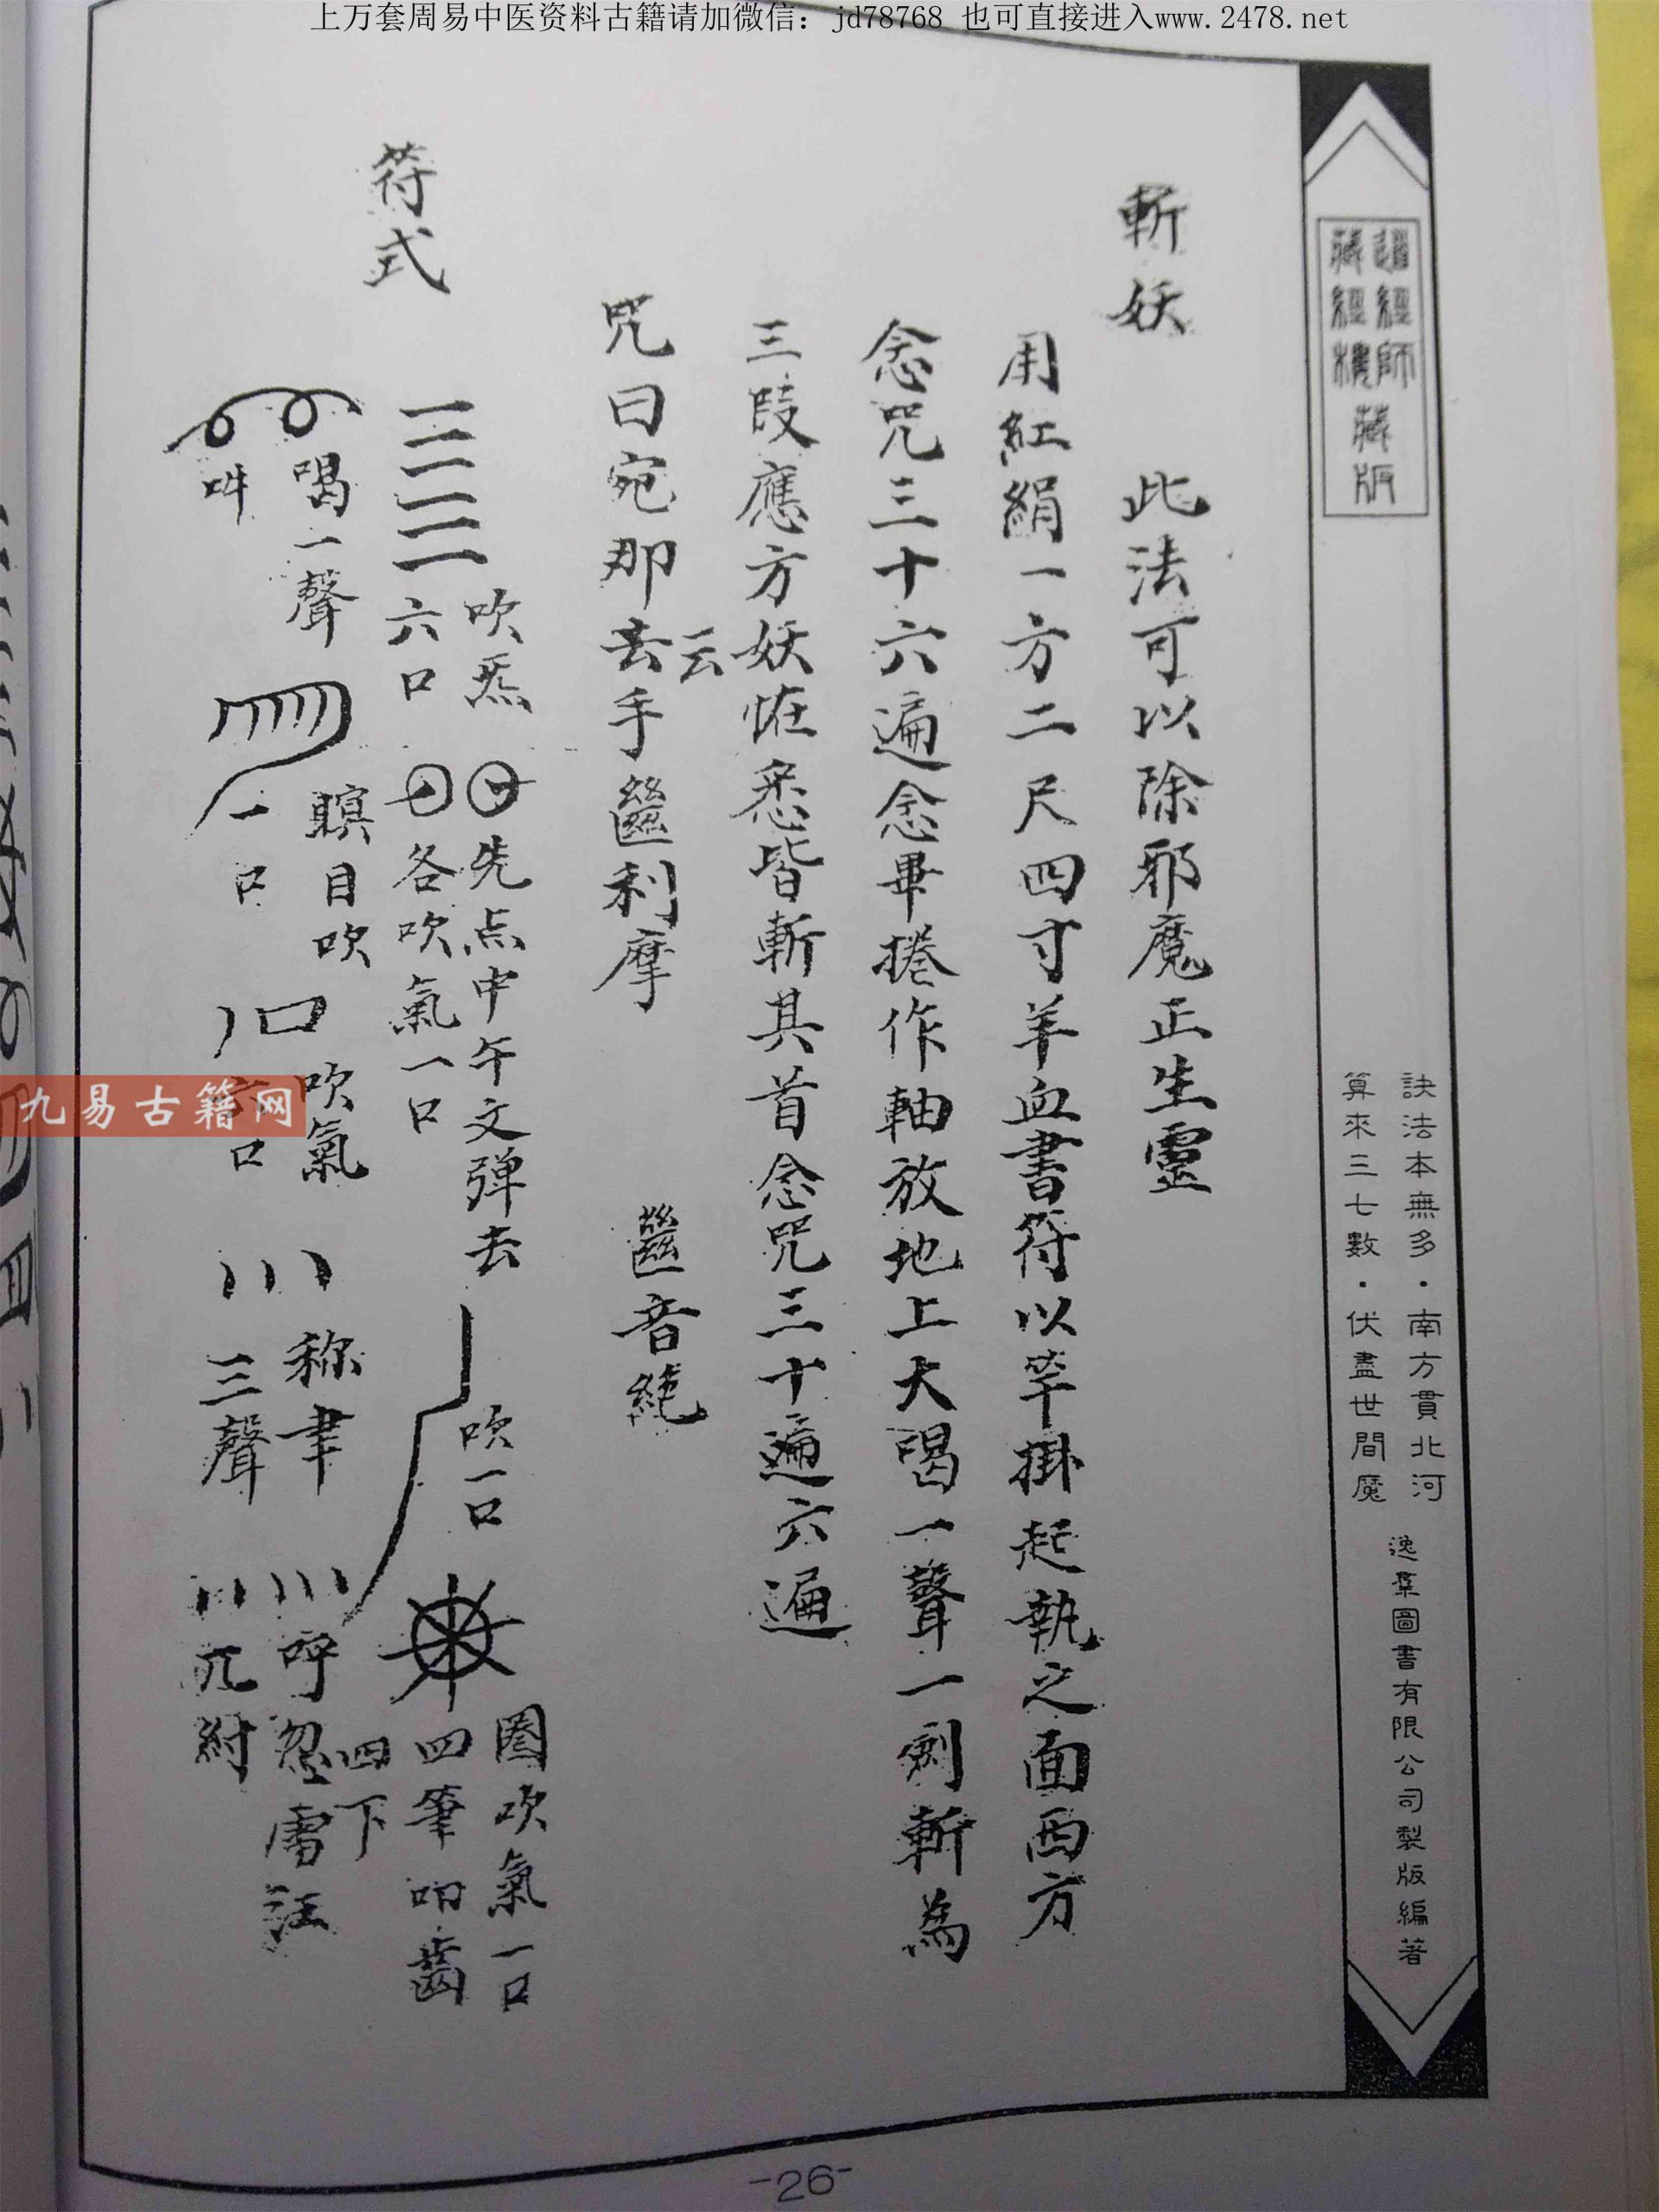 上万套周易中医资料古籍请加微信：jd78768 也可直接进入www.2478.net
道經師
藏經樓
藏版
訣法本無多・南方貫北河
算來三七數・伏盡世間魔
逸羣圖書有限公司製版編著
斬妖　此法可以除邪魔正生靈
用紅絹一方二尺四寸羊血書符以竿掛起執之面西方
念咒三十六遍念畢捲作軸放地上大喝一聲一劍斬為
三段應方妖怪悉皆斬其首念咒三十遍六遍
云
咒曰宛那去手　利摩　音純
符式
吹炁
六口
先点中午文弹去
各吹氣一口
吹一口
圈吹氣一口
四筆叩齒
四下
喝一聲
吽
瞑目吹
一口
吹氣
六口
称聿
三聲
呼忽雷
九紂
九易古籍网
-26-